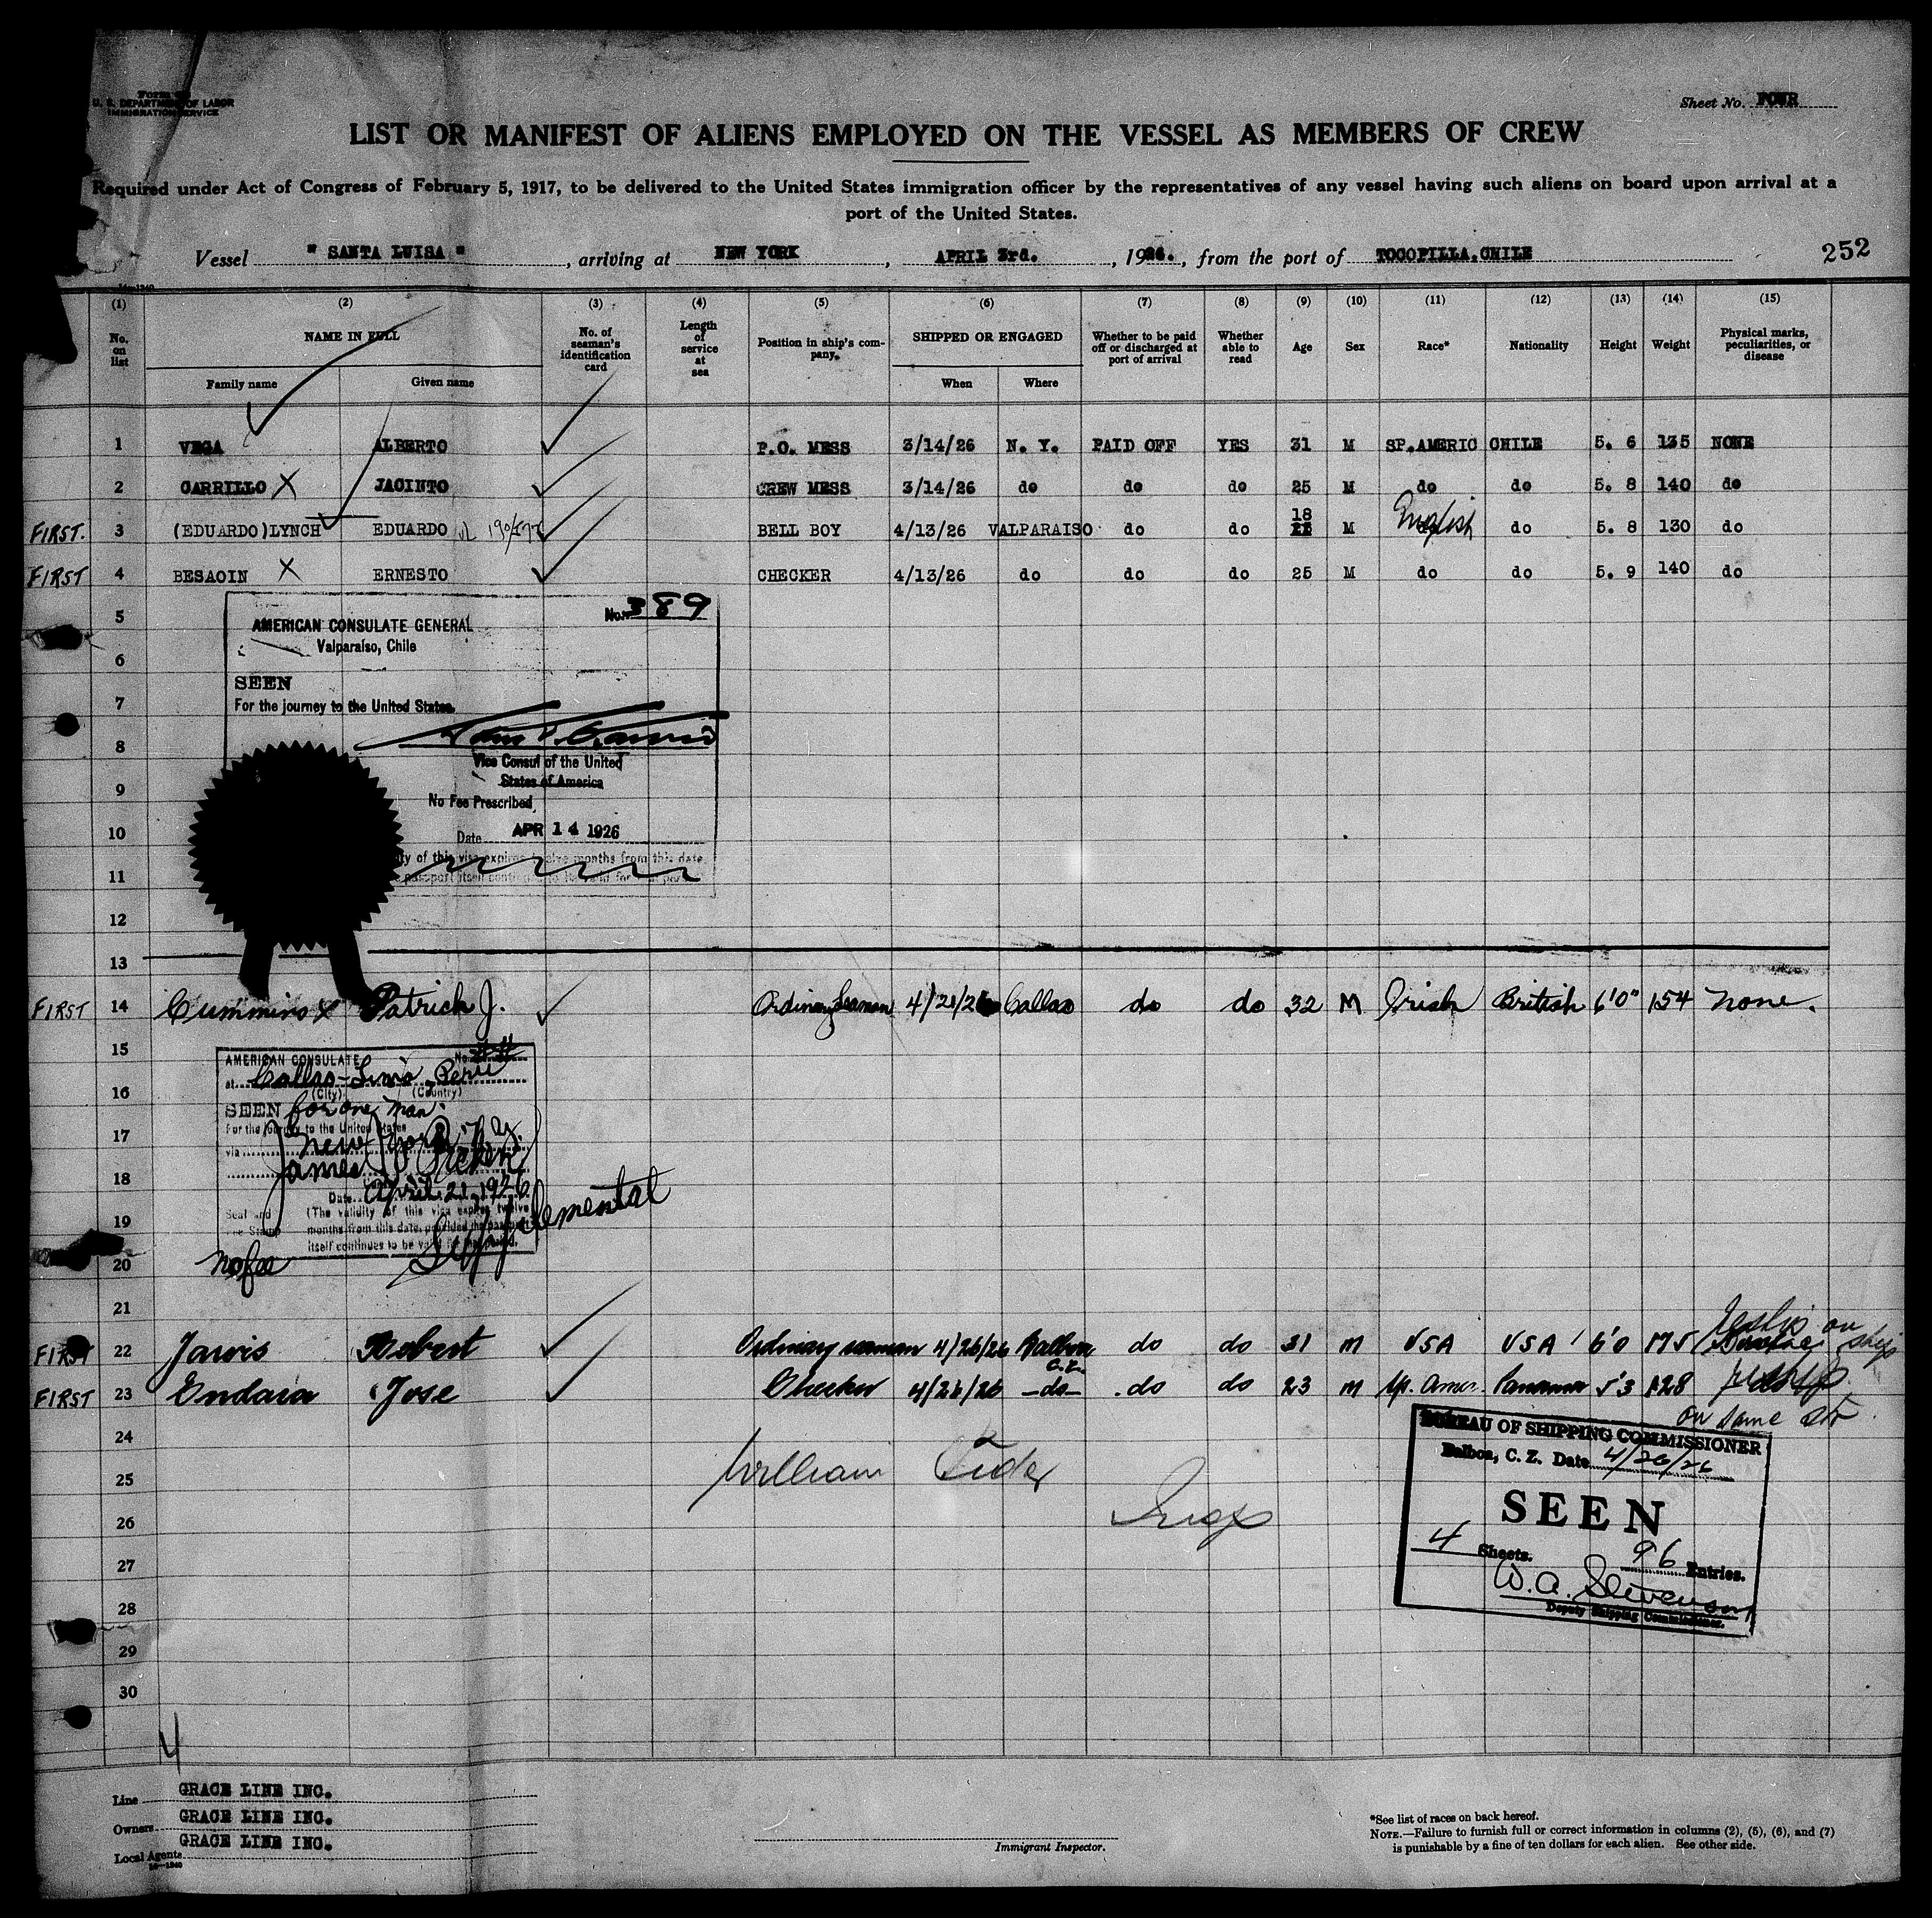 Form
U. S. DEPARTMENT OF LABOR
IMMIGRATION SERVICE
Sheet No. FOUR
LIST OR MANIFEST OF ALIENS EMPLOYED ON THE VESSEL AS MEMBERS OF CREW
Required under Act of Congress of February 5, 1917, to be delivered to the United States immigration officer by the representatives of any vessel having such aliens on board upon arrival at a
port of the United States.
Vessel " SANTA LUISA " , arriving at NEW YORK , APRIL 3rd. , 1926. , from the port of TOCOPILLA.CHILE
252
(1) (2) (3) (4) (5) (6) (7) (8) (9) (10) (11) (12) (13) (14) (15)
No. on list NAME IN FULL No. of seaman's identification card Length of service at sea Position in ship's company. SHIPPED OR ENGAGED Whether to be paid off or discharged at port of arrival Whether able to read Age Sex Race* Nationality Height Weight Physical marks, peculiarities, or disease
Family name Given name When Where
1 VEGA ALBERTO P.O. MESS 3/14/26 N. Y. PAID OFF YES 31 M SP.AMERIC CHILE 5. 6 135 NONE
2 CARRILLO X JACINTO CREW MESS 3/14/26 do do do 25 M do do 5. 8 140 do
FIRST. 3 (EDUARDO)LYNCH EDUARDO BELL BOY 4/13/26 VALPARAISO do do 18 M English do 5. 8 130 do
FIRST 4 BESAOIN X ERNESTO CHECKER 4/13/26 do do do 25 M do do 5. 9 140 do
5
No. 389
AMERICAN CONSULATE GENERAL
Valparaíso, Chile
6
SEEN
7
For the journey to the United States.
8
Vice Consul of the United
States of America
9
No Fee Prescribed
10
Date APR 14 1926
ty of this visa expires twelve months from this date
11
12
13
FIRST 14 Cummins X Patrick J. Ordinary Seaman 4/21/26 Callao do do 32 M Irish British 6'0" 154 None.
15
AMERICAN CONSULATE No.
at Callao-Lima, Peru
(City) (Country)
16
SEEN for one man.
For the journey to the United States
17
via New York, N.Y.
James
18
Date April 21, 1926
Seal and (The validity of this visa expires twelve
19
months from this date, provided the passport
itself continues to be valid for that period.
Supplemental
20
No fee
21
FIRST 22 Jarvis Robert Ordinary seaman 4/26/26 Balboa C.Z. do do 31 M USA USA 6'0 175
on ship
FIRST 23 Endara Jose Checker 4/26/26 -do- do do 23 M Sp. Amer. Panama 5'3 128
on same
24
25
William
26
27
28
29
30
BUREAU OF SHIPPING COMMISSIONER
Balboa, C. Z. Date 4/26/26
SEEN
4 Sheets. 96 Entries.
W. A. Stevenson
Deputy Shipping Commissioner.
4
Line GRACE LINE INC.
Owners GRACE LINE INC.
Local Agents GRACE LINE INC.
Immigrant Inspector.
*See list of races on back hereof.
NOTE.—Failure to furnish full or correct information in columns (2), (5), (6), and (7)
is punishable by a fine of ten dollars for each alien. See other side.